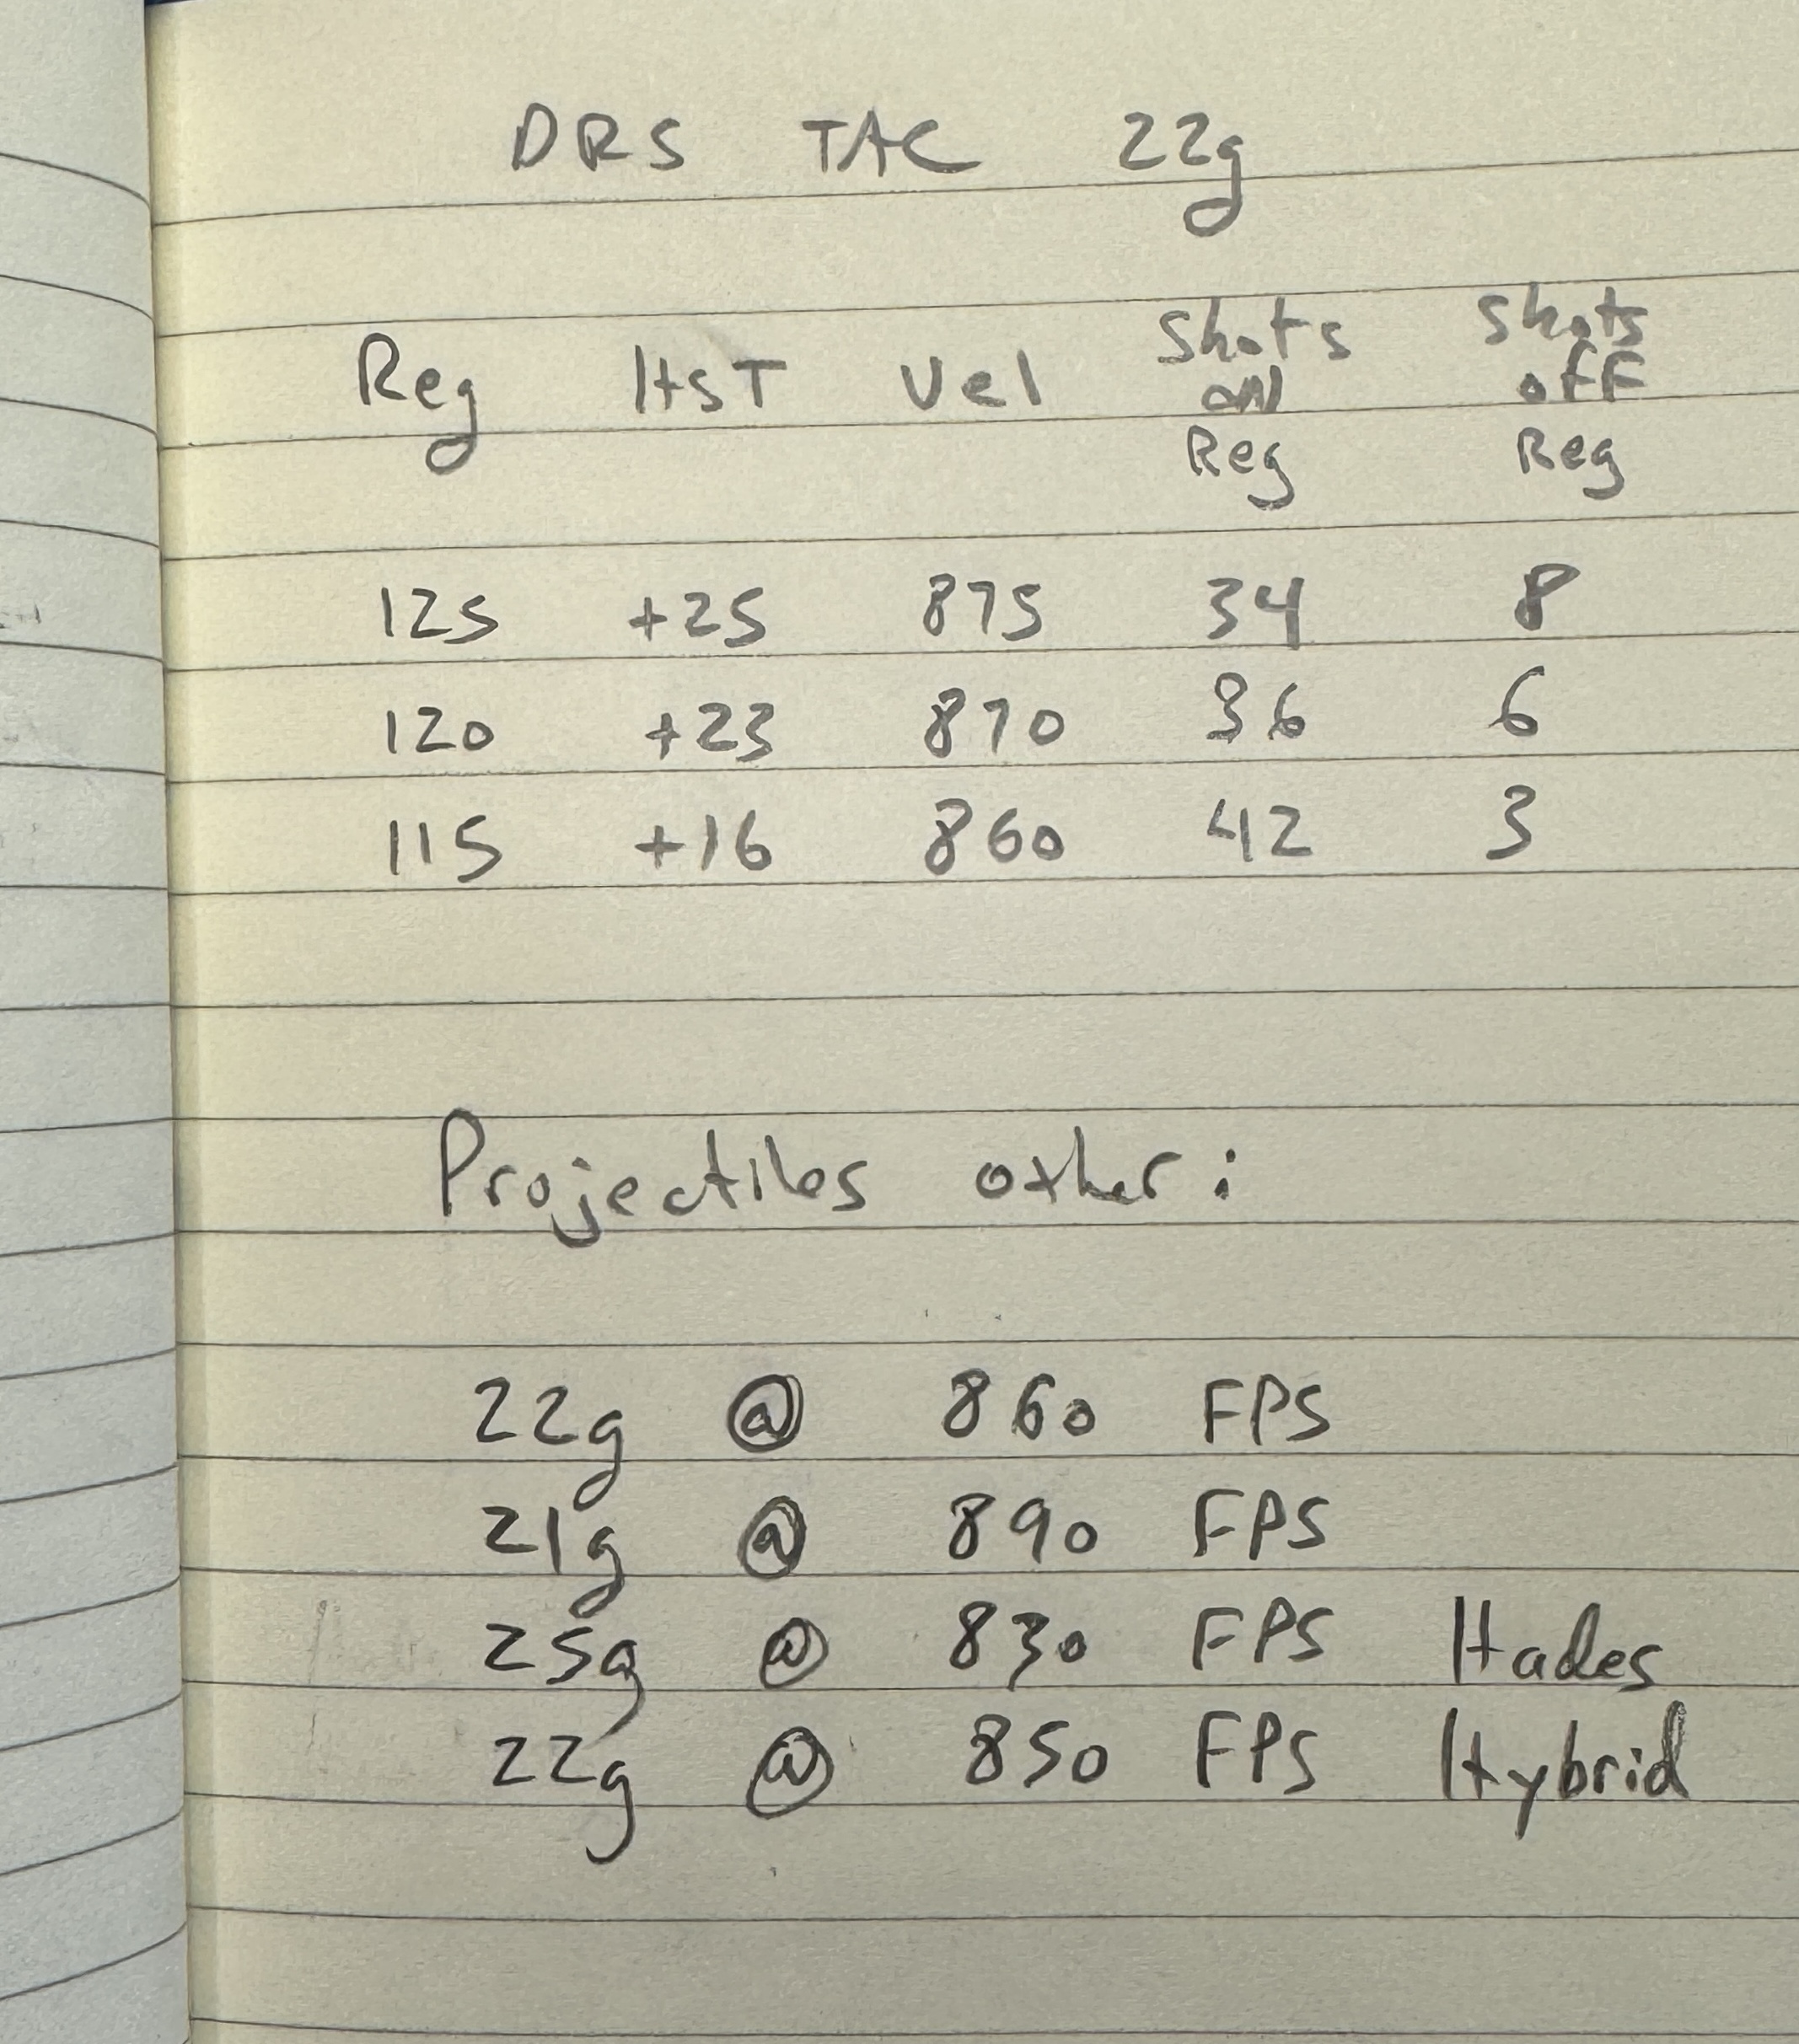 DRS TAC 22g
Reg HST Vel Shots on Reg Shots off Reg
125 +25 875 34 8
120 +23 870 36 6
115 +16 860 42 3
Projectiles other:
22g @ 860 FPS
21g @ 890 FPS
25g @ 830 FPS Hades
22g @ 850 FPS Hybrid